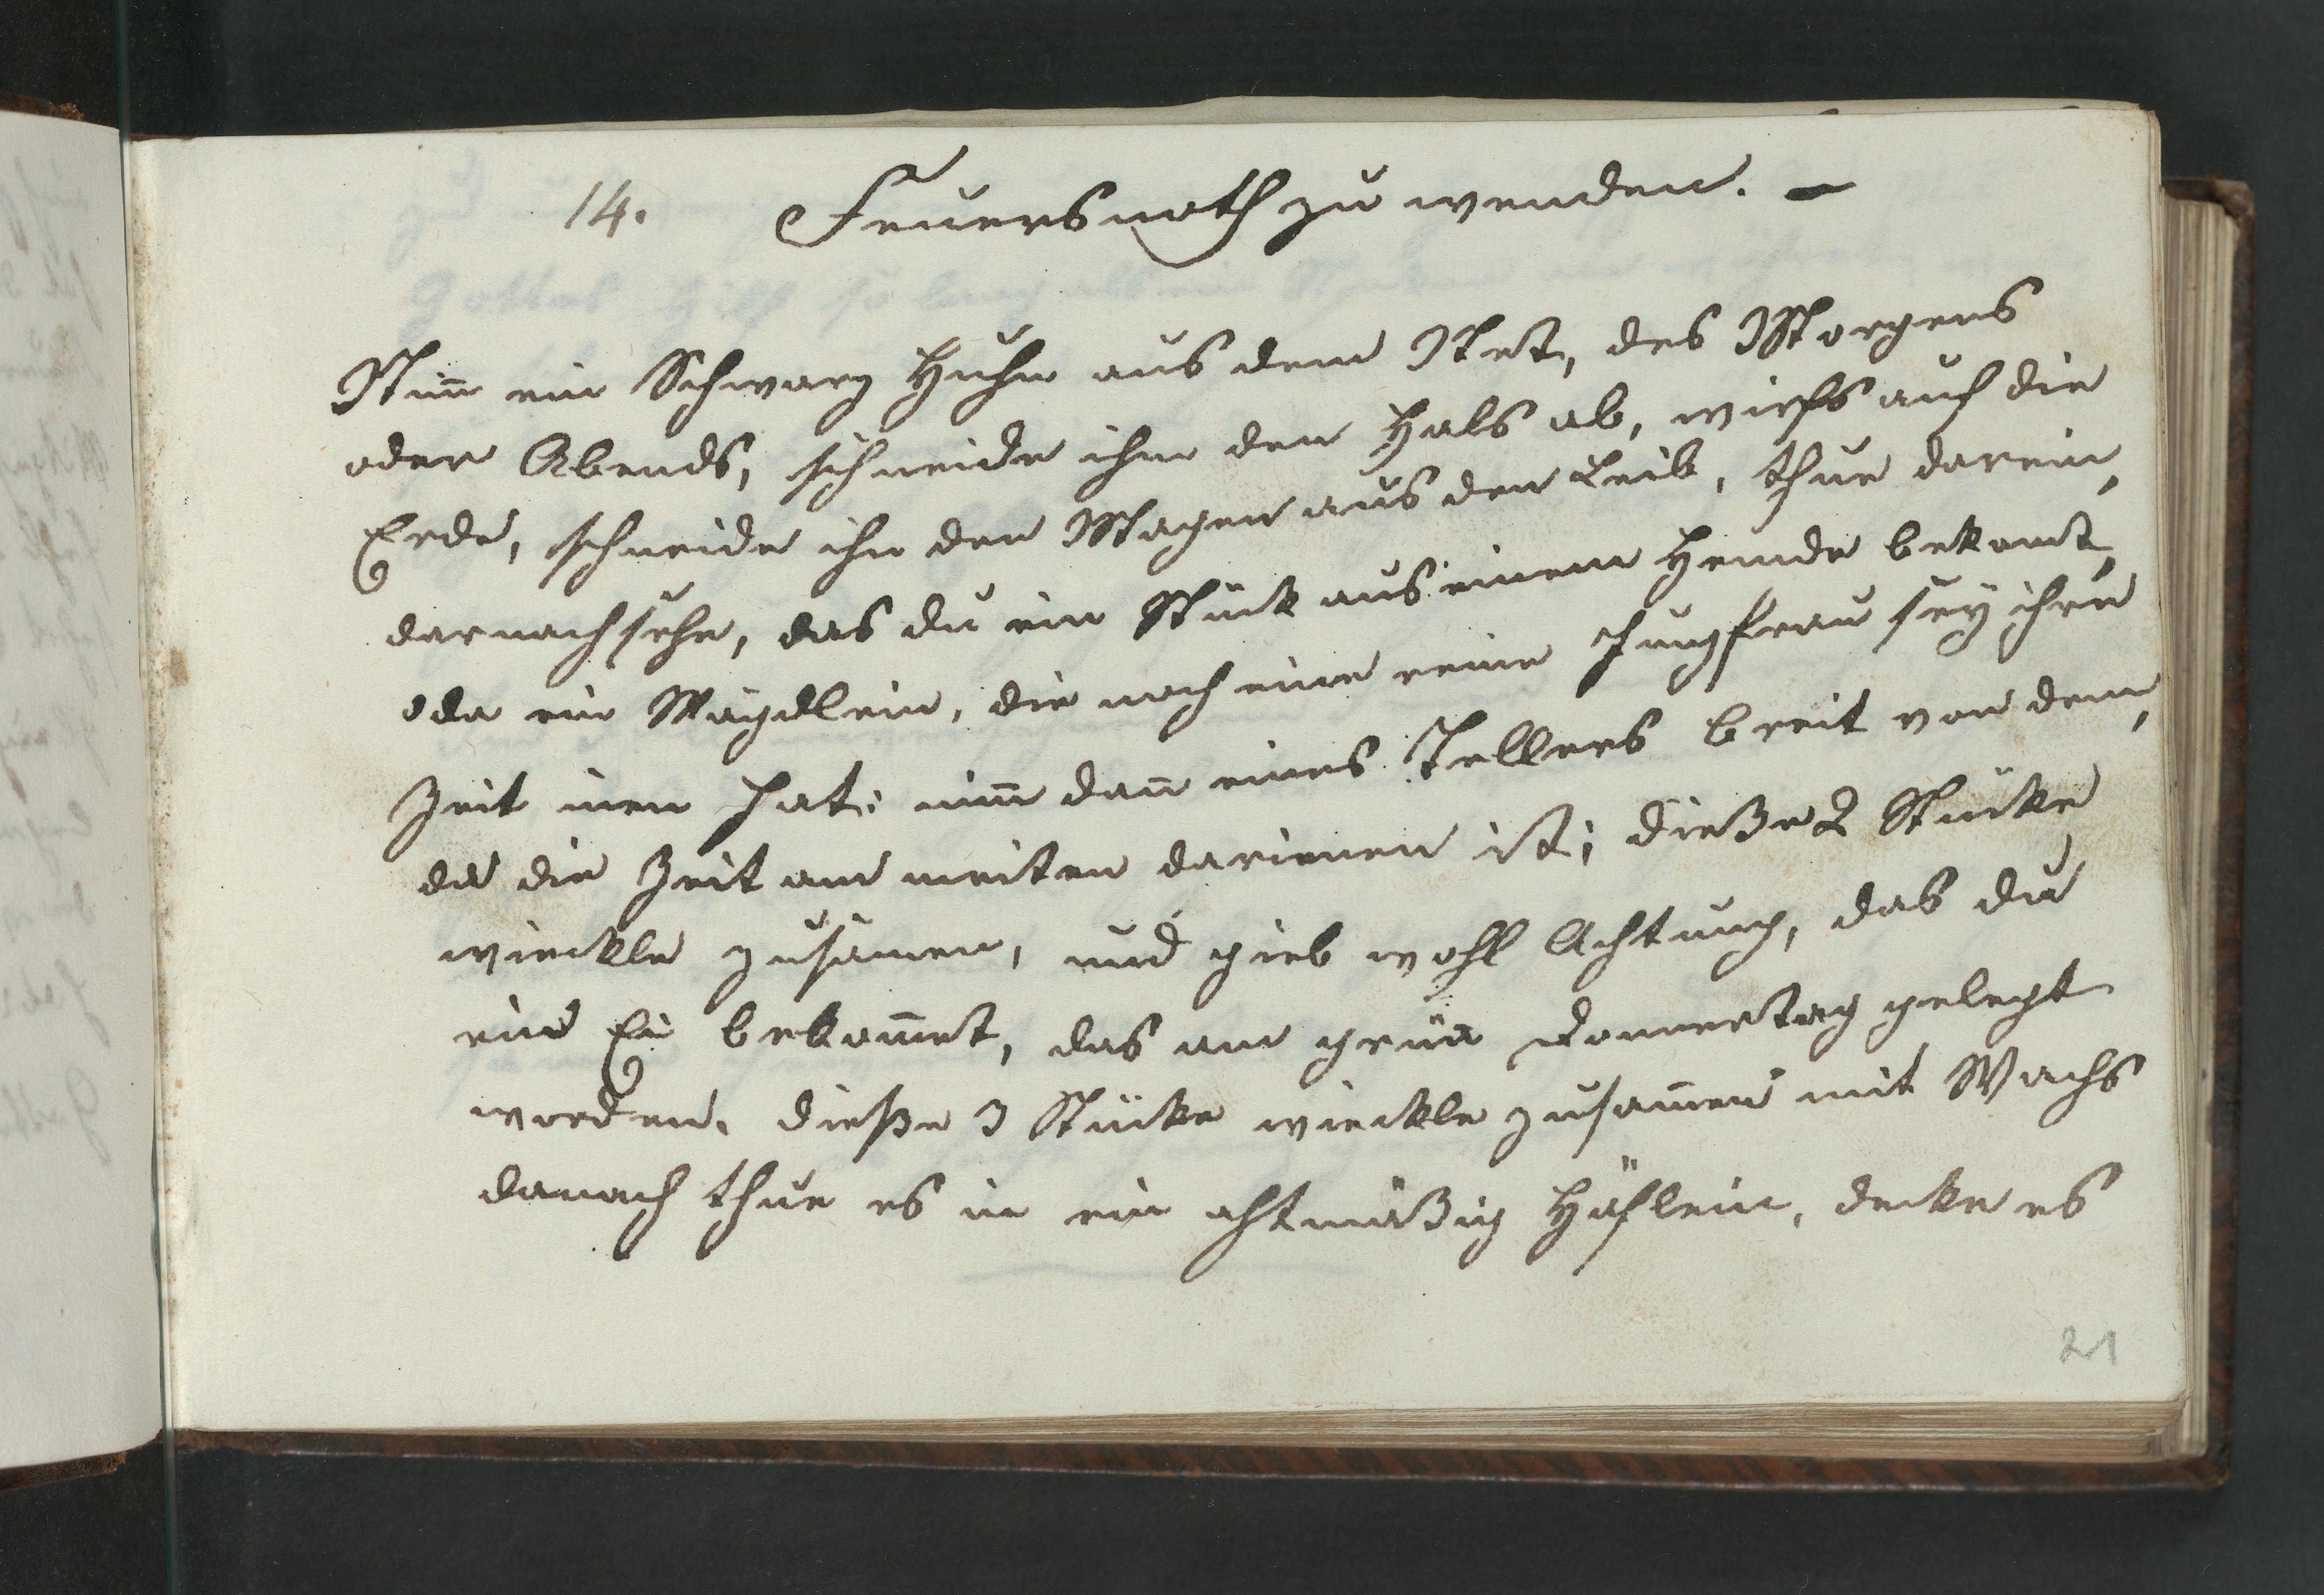 14. Feuersnoth zu wenden. –
Nim̄ ein Schwarz Huhn aus dem Nest, des Morgens
oder Abends, schneide ihm den Hals ab, wirfs auf die
Erde, schneide ihn den Magen aus den Leib, thue darein,
darnach sehe, das du ein Stück aus einem Hemde bekomst,
oda ein Mägdlein, die noch eine reine Jungfrau sey ihre
Zeit inen hat: nim̄ dan̄ eines Tellers breit von dem,
da die Zeit am meisten darinnen ist; dieße 2 Stücke
wieckle zusamen, und gieb wohl Achtung, das du
ein Ei bekom̄est, das am grün Donnerstag gelegt
worden. dieße 3 Stücke wieckle zusam̄en mit Wachs
danach thue es in ein ahtmäßig Häflein, decke es
21